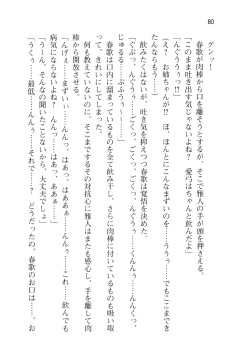 80
グンッ！
春歌が肉棒から口を離そうとするが、そこで雅人の手が頭を押さえる。
「このまま吐き出す気じゃないよね？　愛弓はちゃんと飲んだよ」
「んぐううぅっ!?」
「えっ！　お姉ちゃんが!?　ほ、ほんとにこんなまずいものを……ううぅ……でもここまできたら……」
飲みたくはないが、吐き気を抑えつつ春歌は覚悟を決めた。
「ぐぷっ、んぐぅっ……んぐぅうぅっ……んぐんぐ……んぐ……
じゅるる……ぷふうぅ～……」
春歌は口内に溜まっているものを全て飲み干し、さらに肉棒に付いているものも吸い取って、きれいにしてしまった。
何も教えていないのに、そこまでするその対抗心に雅人はまたも感心し、手を離して肉棒から開放させる。
「んげぇ……まずい……んんっ、はぁっ、はああぁ……んんっ、はあぁっ……
病気にならないよね？　んんっ、はあぁ……」
「うーん、そんなの聞いたことないから、大丈夫でしょ」
「うくぅ……最低……んんぅ……それで……？　どうだったの、春歌のお口は……。お